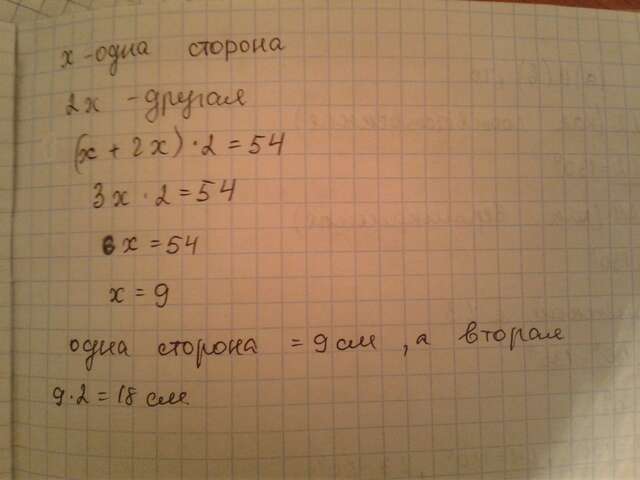 x - одна сторона
2x - другая
(x + 2x) · 2 = 54
3x · 2 = 54
6x = 54
x = 9
одна сторона = 9 см, а вторая
9 · 2 = 18 см